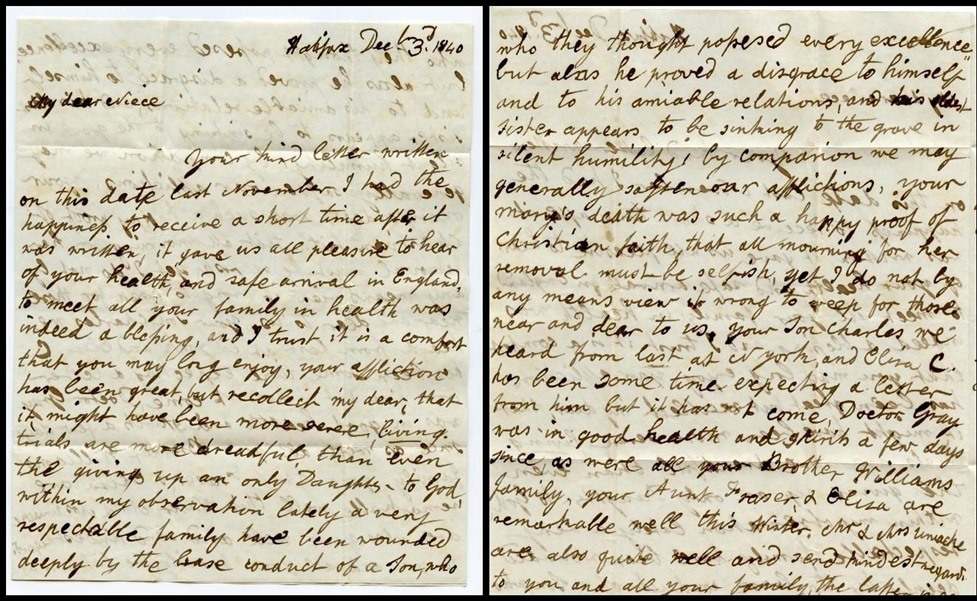 Halifax Decbr 3d. 1840
My dear Niece
Your kind letter written
on this date last November I had the
happiness, to receive a short time after it
was written, it gave us all pleasure to hear
of your health, and safe arrival in England,
to meet all your family in health was
indeed a blessing, and I trust it is a comfort
that you may long enjoy, your affliction
has been great, but recollect my dear, that
it might have been more severe, living
trials are more dreadful than even
the giving up an only Daughter to God,
within my observation lately a very
respectable family have been wounded
deeply by the base conduct of a Son, who
who they thought posesed every excellence
but alas he proved a disgrace to himself
and to his amiable relations, and his oldest
sister appears to be sinking to the grave in
silent humility; by comparion we may
generally soften our afflictions, your
Mary's death was such a happy proof of
Christian faith, that all mourning for her
removal must be selfish, yet I do not by
any means view it wrong to weep for those
near and dear to us, your Son Charles we
heard from last at N York, and Eliza C.
has been some time expecting a letter
from him but it has not come Doctor Gray
was in good health and spirits a few days
since as were all your Brother Williams
family, your Aunt Fraser, & Eliza are
remarkable well this Winter, Mr & Mrs Uniacke
are also quite well and send kindest regards
to you and all your family, the latter